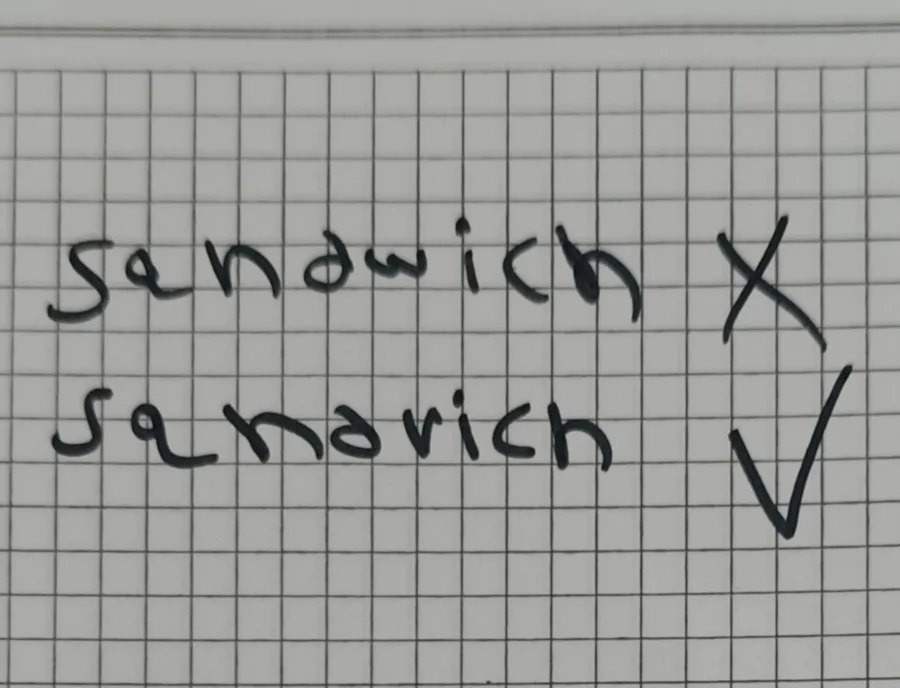 sandwich X
sandvich ✓